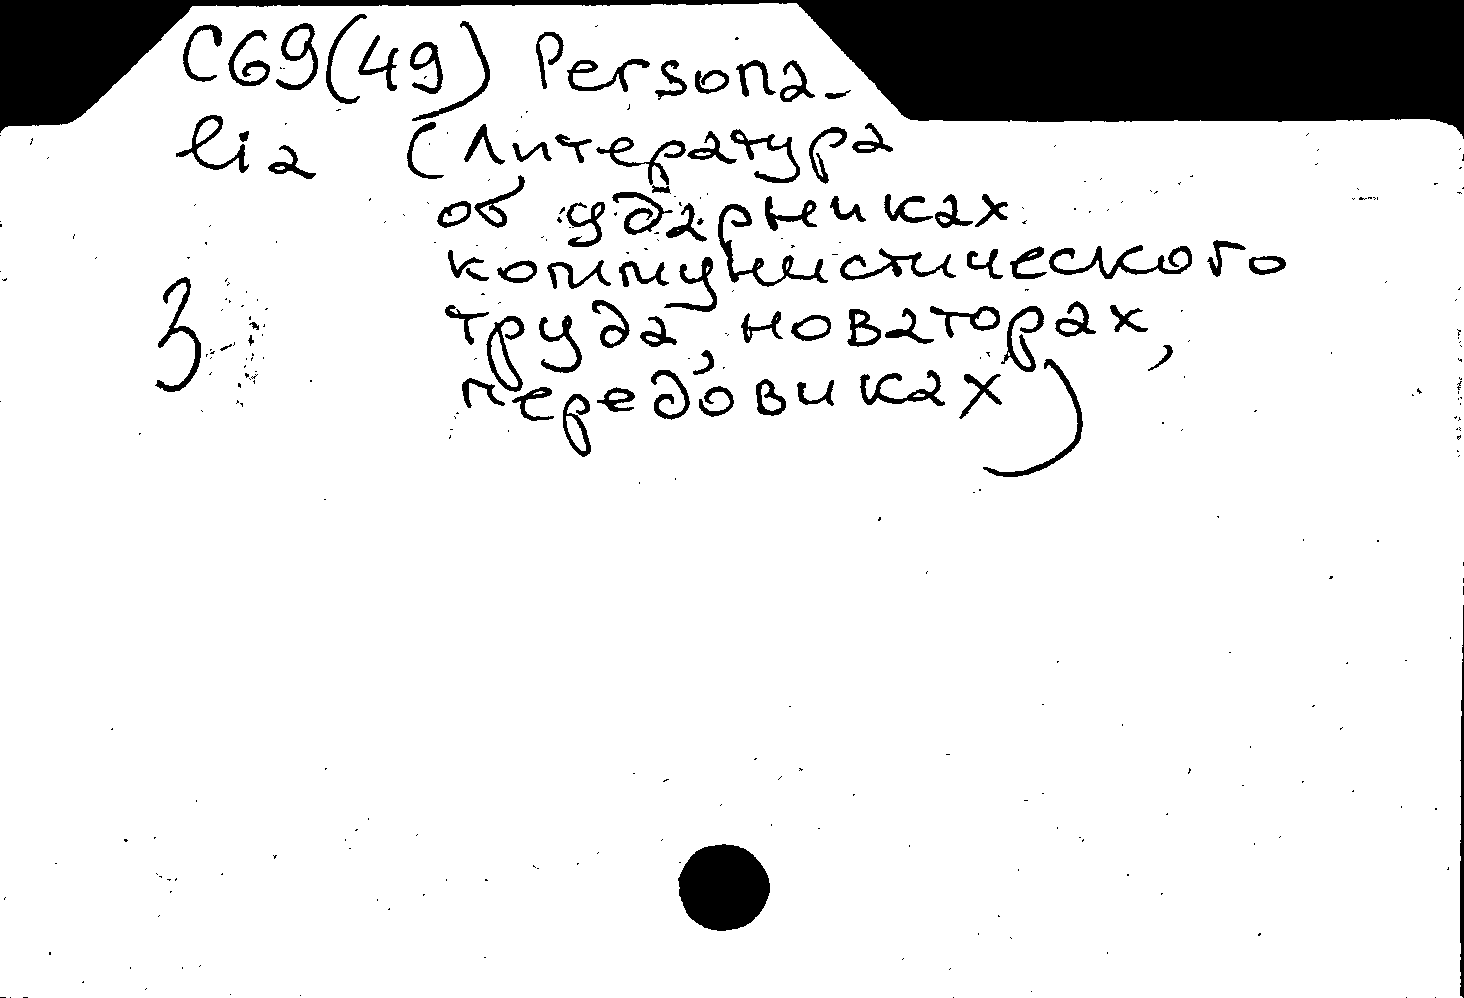 С69(49) Persona-
lia (Литература
об ударниках
коммунистического
труда, новаторах,
З
передовиках)